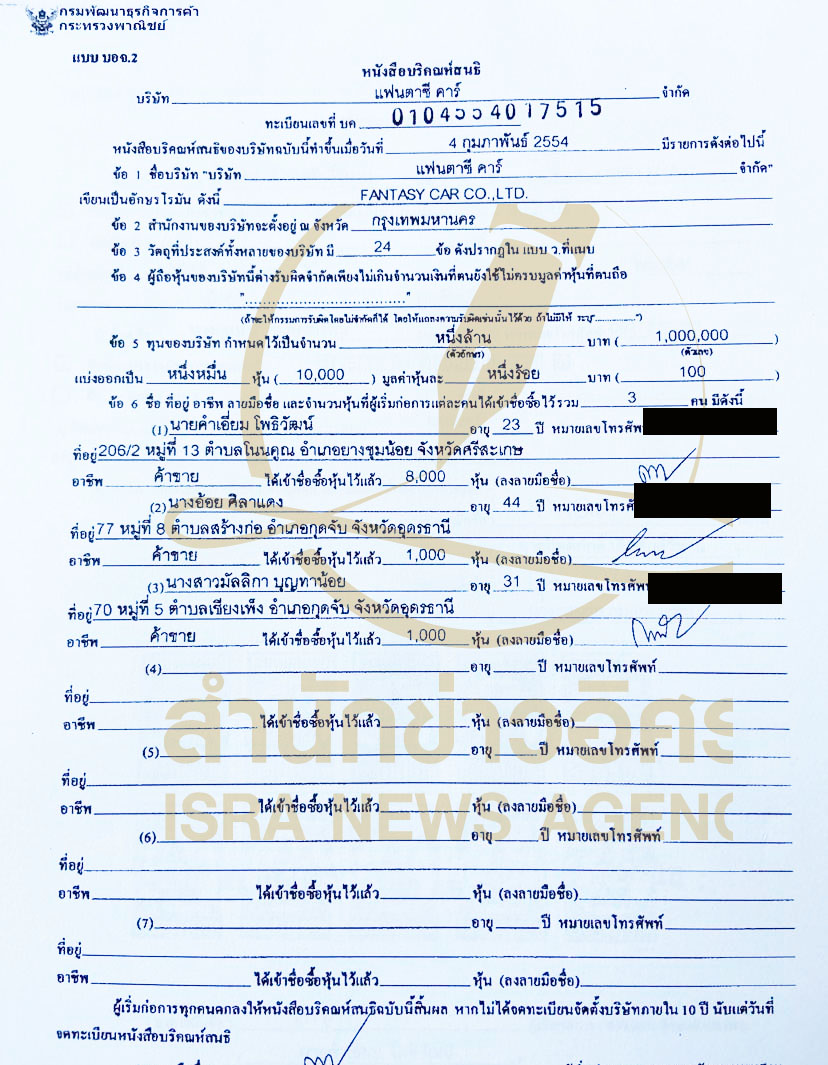 กรมพัฒนาธุรกิจการค้า
กระทรวงพาณิชย์
แบบ บอจ.2
หนังสือบริคณห์สนธิ
บริษัท แฟนตาซี คาร์ จำกัด
ทะเบียนเลขที่ บค 0104554017515
หนังสือบริคณห์สนธิของบริษัทฉบับนี้ทำขึ้นเมื่อวันที่ 4 กุมภาพันธ์ 2554 มีรายการดังต่อไปนี้
ข้อ 1 ชื่อบริษัท "บริษัท แฟนตาซี คาร์ จำกัด"
เขียนเป็นอักษรโรมัน ดังนี้ FANTASY CAR CO.,LTD.
ข้อ 2 สำนักงานของบริษัทจะตั้งอยู่ ณ จังหวัด กรุงเทพมหานคร
ข้อ 3 วัตถุที่ประสงค์ทั้งหลายของบริษัท มี 24 ข้อ ดังปรากฏใน แบบ ว.ที่แนบ
ข้อ 4 ผู้ถือหุ้นของบริษัทนี้ต่างรับผิดจำกัดเพียงไม่เกินจำนวนเงินที่ตนยังใช้ไม่ครบมูลค่าหุ้นที่ตนถือ
"...................................."
(ถ้าจะให้กรรมการรับผิดโดยไม่จำกัดก็ได้ โดยให้แถลงความรับผิดเช่นนั้นไว้ด้วย ถ้าไม่มีให้ ระบุ "...............")
ข้อ 5 ทุนของบริษัท กำหนดไว้เป็นจำนวน หนึ่งล้าน บาท ( 1,000,000 )
(ตัวอักษร) (ตัวเลข)
แบ่งออกเป็น หนึ่งหมื่น หุ้น ( 10,000 ) มูลค่าหุ้นละ หนึ่งร้อย บาท ( 100 )
ข้อ 6 ชื่อ ที่อยู่ อาชีพ ลายมือชื่อ และจำนวนหุ้นที่ผู้เริ่มก่อการแต่ละคนได้เข้าชื่อซื้อไว้ รวม 3 คน มีดังนี้
(1) นายคำเอี่ยม โพธิวัฒน์ อายุ 23 ปี หมายเลขโทรศัพ
ที่อยู่ 206/2 หมู่ที่ 13 ตำบลโนนคูณ อำเภอยางชุมน้อย จังหวัดศรีสะเกษ
อาชีพ ค้าขาย ได้เข้าชื่อซื้อหุ้นไว้แล้ว 8,000 หุ้น (ลงลายมือชื่อ)
(2) นางอ้อย ศิลาแดง อายุ 44 ปี หมายเลขโทรศั
ที่อยู่ 77 หมู่ที่ 8 ตำบลสร้างก่อ อำเภอกุดจับ จังหวัดอุดรธานี
อาชีพ ค้าขาย ได้เข้าชื่อซื้อหุ้นไว้แล้ว 1,000 หุ้น (ลงลายมือชื่อ)
(3) นางสาวมัลลิกา บุญทาน้อย อายุ 31 ปี หมายเลขโทรศัพ
ที่อยู่ 70 หมู่ที่ 5 ตำบลเชียงเพ็ง อำเภอกุดจับ จังหวัดอุดรธานี
อาชีพ ค้าขาย ได้เข้าชื่อซื้อหุ้นไว้แล้ว 1,000 หุ้น (ลงลายมือชื่อ)
(4) อายุ ปี หมายเลขโทรศัพท์
ที่อยู่
สำนักข่าวอิศร
อาชีพ ได้เข้าชื่อซื้อหุ้นไว้แล้ว หุ้น (ลงลายมือชื่อ)
(5) อายุ ปี หมายเลขโทรศัพท์
ที่อยู่
ISRA NEWS AGENC
อาชีพ ได้เข้าชื่อซื้อหุ้นไว้แล้ว หุ้น (ลงลายมือชื่อ)
(6) อายุ ปี หมายเลขโทรศัพท์
ที่อยู่
อาชีพ ได้เข้าชื่อซื้อหุ้นไว้แล้ว หุ้น (ลงลายมือชื่อ)
(7) อายุ ปี หมายเลขโทรศัพท์
ที่อยู่
อาชีพ ได้เข้าชื่อซื้อหุ้นไว้แล้ว หุ้น (ลงลายมือชื่อ)
ผู้เริ่มก่อการทุกคนตกลงให้หนังสือบริคณห์สนธิฉบับนี้สิ้นผล หากไม่ได้จดทะเบียนจัดตั้งบริษัทภายใน 10 ปี นับแต่วันที่
จดทะเบียนหนังสือบริคณห์สนธิ